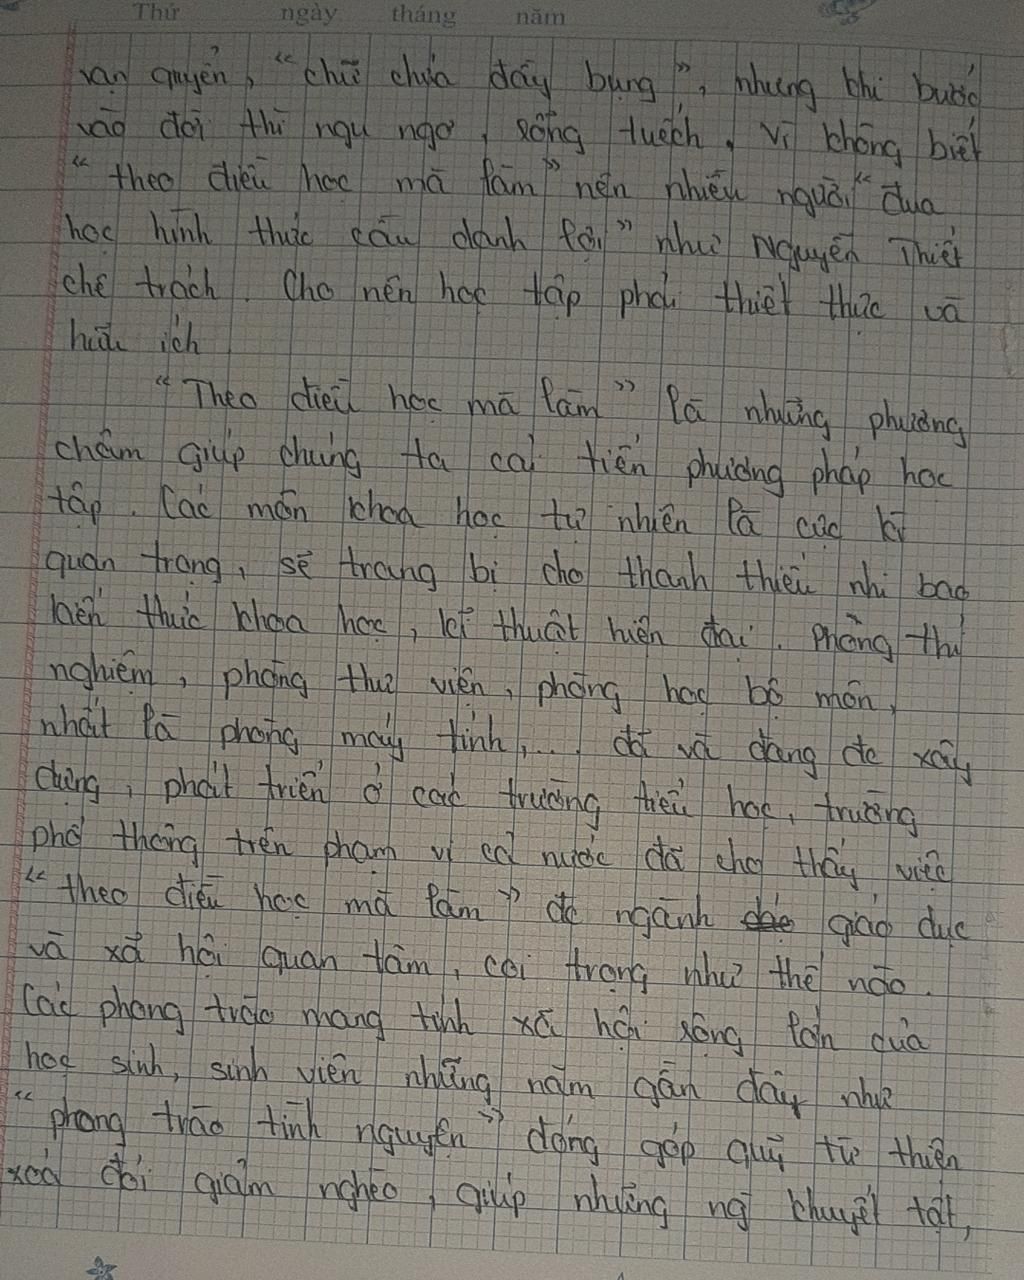 Thứ ngày tháng năm
vạn quyển, "chữ chứa đầy bụng", nhưng khi bước
vào đời thì ngu ngơ, rỗng tuếch. Vì không biết
"theo điều học mà làm" nên nhiều người "đua
học hình thức cầu danh lợi" như Nguyễn Thiếp
chê trách. Cho nên học tập phải thiết thực và
hữu ích
"Theo điều học mà làm" là những phương
châm giúp chúng ta cải tiến phương pháp học
tập. Các môn khoa học tự nhiên là cực kì
quan trọng, sẽ trang bị cho thanh thiếu nhi bao
kiến thức khoa học, kĩ thuật hiện đại. Phòng thí
nghiệm, phòng thư viện, phòng học bộ môn,
nhất là phòng máy tính,... đã và đang đc xây
dựng, phát triển ở các trường tiểu học, trường
phổ thông trên phạm vi cả nước đã cho thấy việc
"theo điều học mà làm" đc ngành giáo dục
và xã hội quan tâm, coi trọng như thế nào.
Các phong trào mang tính xã hội rộng lớn của
học sinh, sinh viên những năm gần đây như
"phong trào tình nguyện" đóng góp quỹ từ thiện
xoá đói giảm nghèo, giúp những ng khuyết tật,